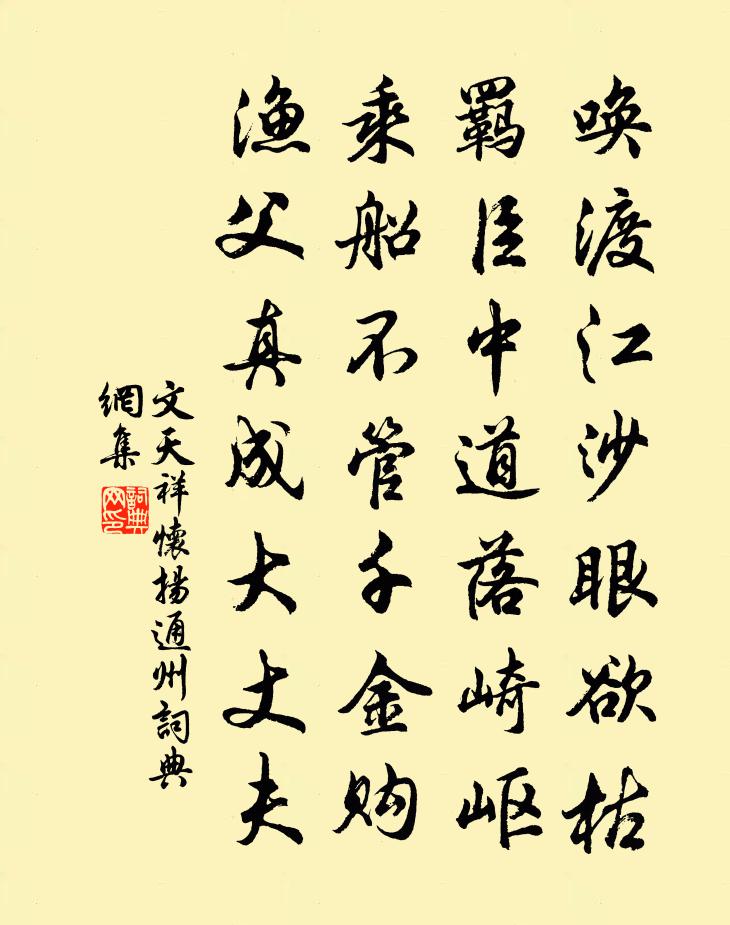 唤渡江沙眼欲枯
羁臣中道落崎岖
乘船不管千金购
渔父真成大丈夫
文天祥懷揚通州詞典
網集
詞典网印